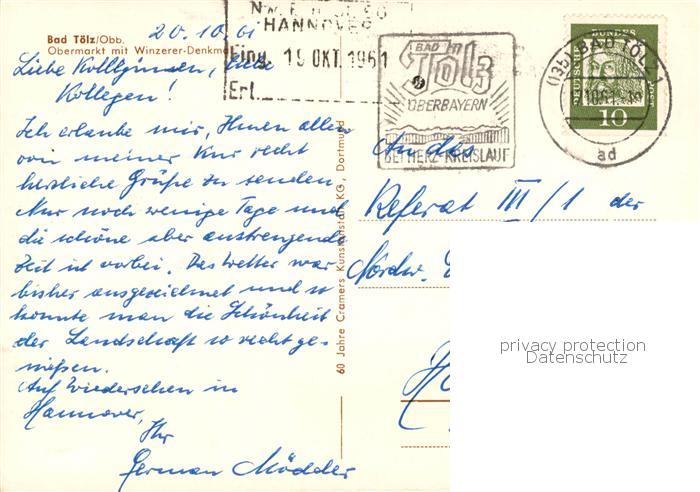 Bad Tölz/Obb.
Obermarkt mit Winzerer-Denkmal
20.10.61
HANNOVER
Eing. 19. OKT. 1961
Erl.
BAD
Tölz
OBERBAYERN
BEI HERZ-KREISLAUF
(13b) BAD TÖLZ 1
ad
DEUTSCHE BUNDESPOST
10
Liebe Kolleginnen, liebe
Kollegen!
Ich erlaube mir, Ihnen allen
von meiner Kur recht
herzliche Grüße zu senden.
Nur noch wenige Tage und
die schöne aber anstrengende
Zeit ist vorbei. Das Wetter war
bisher ausgezeichnet und so
konnte man die Schönheit
der Landschaft so recht ge-
nießen.
Auf Wiedersehen in
Hannover,
Ihr
German Mödder
60 Jahre Cramers Kunstanstalt KG, Dortmund
An das
Referat III/1 der
Nordw.
privacy protection
Datenschutz